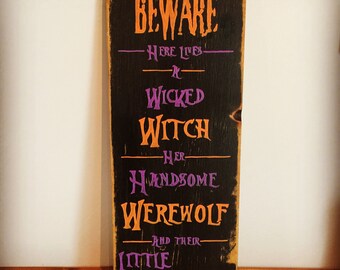 BEWARE
HERE LIVES
A
WICKED
WITCH
HER
HANDSOME
WEREWOLF
AND THEIR
LITTLE